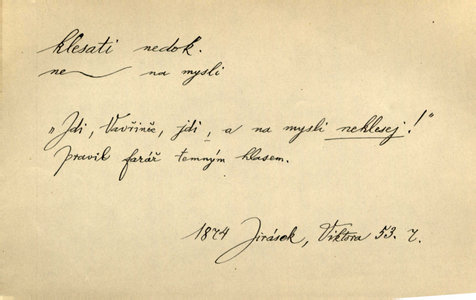 klesati nedok.
ne~ na mysli
„Jdi, Vavřinče, jdi, a na mysli neklesej!“
pravil farář temným hlasem.
1874 Jirásek, Viktora 53. 7.